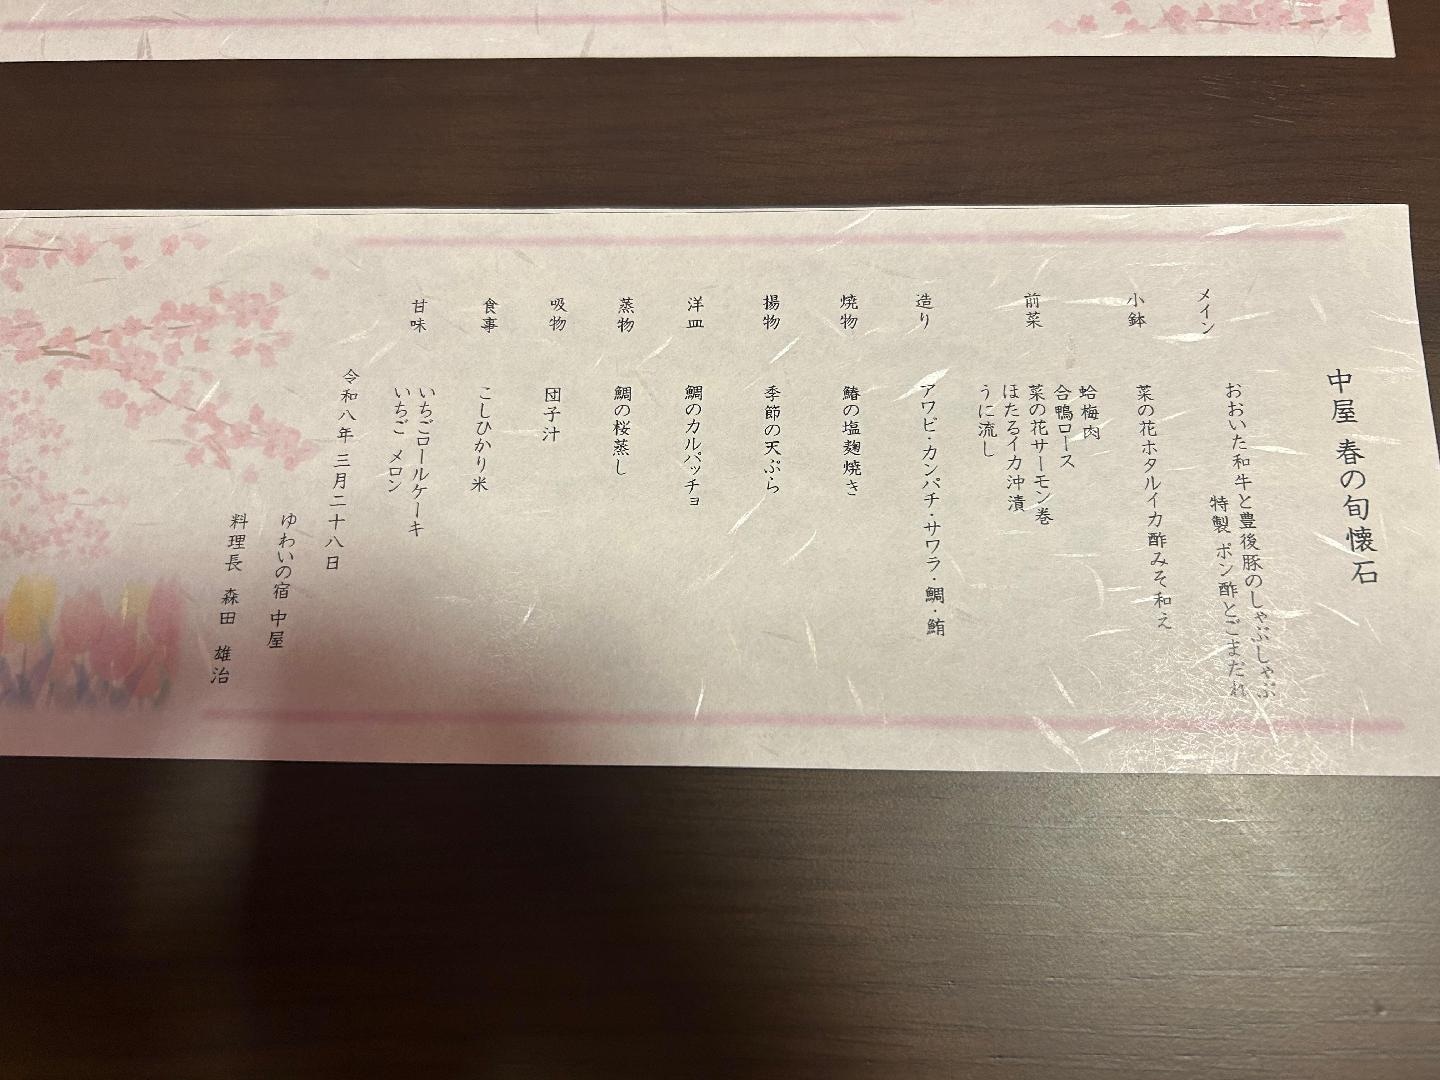 中屋 春の旬懐石
メイン おおいた和牛と豊後豚のしゃぶしゃぶ
特製 ポン酢とごまだれ
小鉢 菜の花ホタルイカ酢みそ和え
前菜 蛤梅肉
合鴨ロース
菜の花サーモン巻
ほたるイカ沖漬
うに流し
造り アワビ・カンパチ・サワラ・鯛・鮪
焼物 鰆の塩麹焼き
揚物 季節の天ぷら
洋皿 鯛のカルパッチョ
蒸物 鯛の桜蒸し
吸物 団子汁
食事 こしひかり米
甘味 いちごロールケーキ
いちご メロン
令和八年 三月二十八日
ゆわいの宿 中屋
料理長 森田 雄治